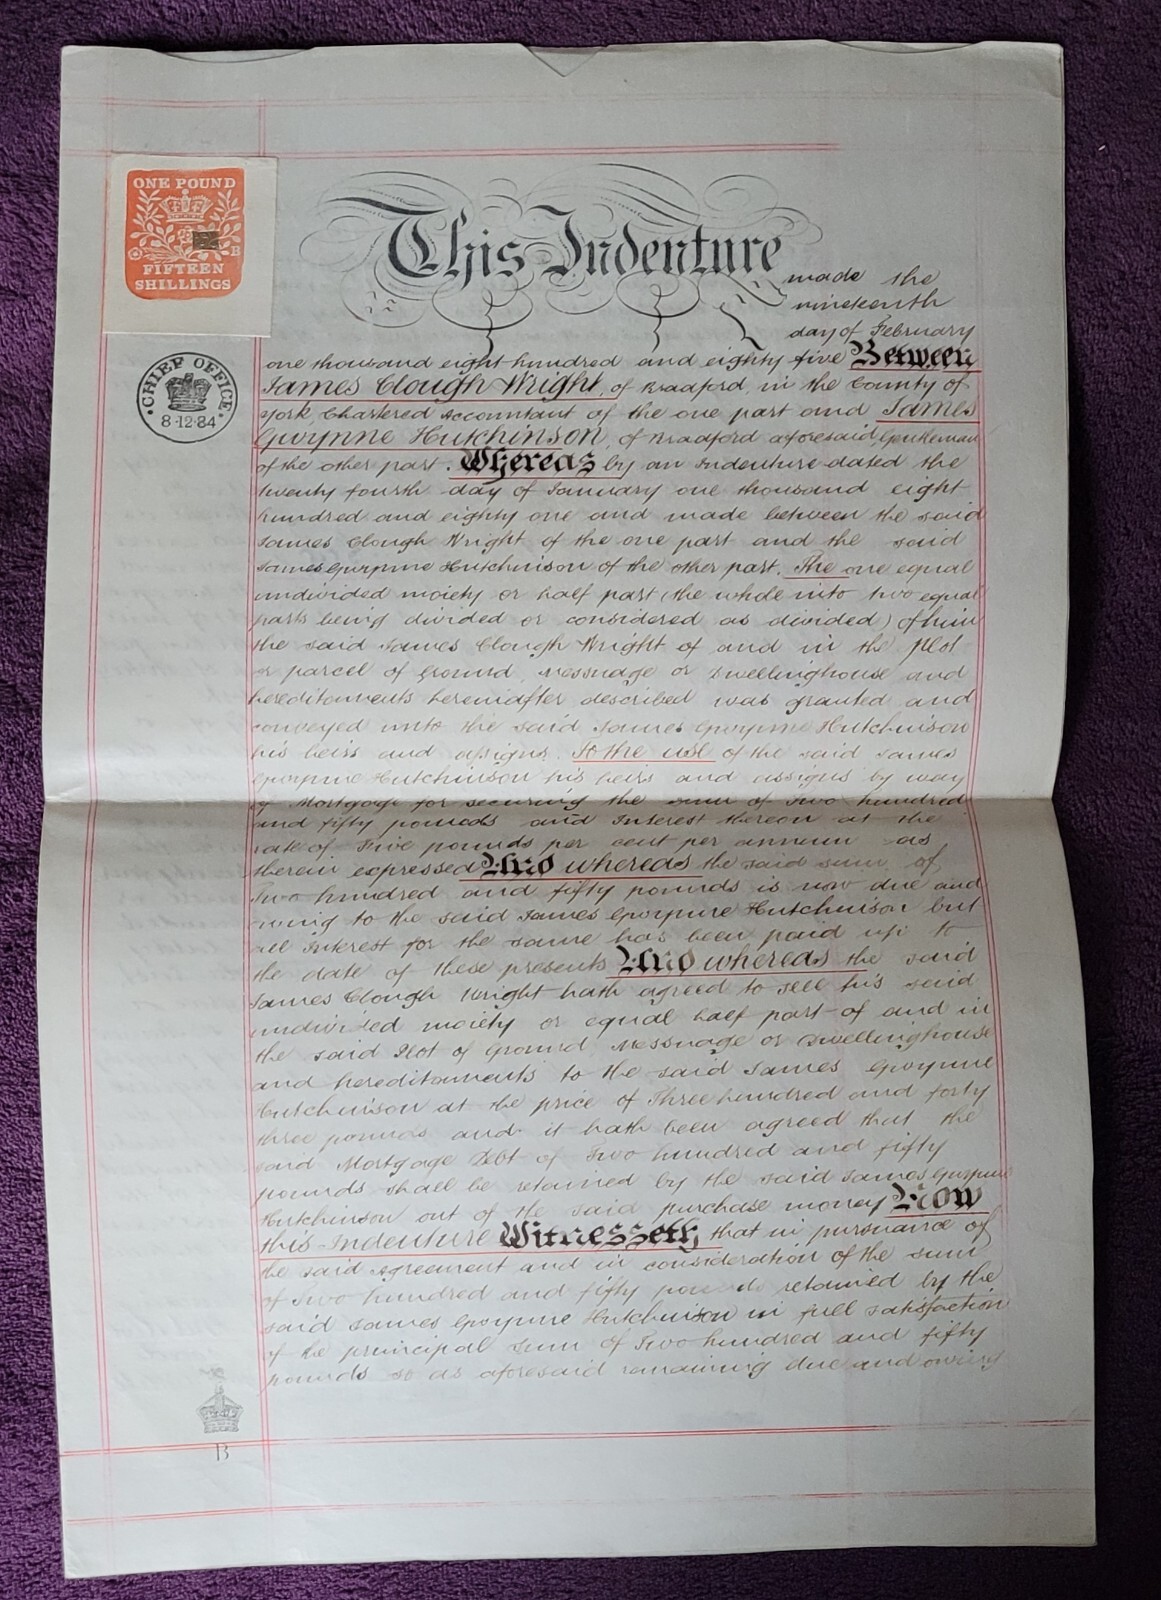 ONE POUND
B
FIFTEEN
SHILLINGS
CHIEF OFFICE
8·12·84
This Indenture made the
nineteenth
day of February
one thousand eight hundred and eighty five Between
James Clough Wright, of Bradford, in the County of
York, Chartered Accountant of the one part and James
Gwynne Hutchinson, of Bradford aforesaid, Gentleman
of the other part. Whereas by an Indenture dated the
twenty fourth day of January one thousand eight
hundred and eighty one and made between the said
James Clough Wright of the one part and the said
James Gwynne Hutchinson of the other part. The one equal
undivided moiety or half part (the whole into two equal
parts being divided or considered as divided) of him
the said James Clough Wright of and in the Plot
or parcel of Ground, Messuage or Dwellinghouse and
hereditaments hereinafter described was granted and
conveyed unto the said James Gwynne Hutchinson
his heirs and assigns To the use of the said James
Gwynne Hutchinson his heirs and assigns by way
of Mortgage for securing the sum of Two hundred
and fifty pounds and Interest thereon at the
rate of Five pounds per cent per annum as
therein expressed And whereas the said sum of
Two hundred and fifty pounds is now due and
owing to the said James Gwynne Hutchinson but
all Interest for the same has been paid up to
the date of these presents And whereas the said
James Clough Wright hath agreed to sell his said
undivided moiety or equal half part of and in
the said Plot of Ground, Messuage or Dwellinghouse
and hereditaments to the said James Gwynne
Hutchinson at the price of Three hundred and forty
three pounds and it hath been agreed that the
said Mortgage Debt of Two hundred and fifty
pounds shall be retained by the said James Gwynne
Hutchinson out of the said purchase money Now
this Indenture Witnesseth that in pursuance of
the said Agreement and in consideration of the sum
of Two hundred and fifty pounds retained by the
said James Gwynne Hutchinson in full satisfaction
of the principal sum of Two hundred and fifty
pounds so as aforesaid remaining due and owing
B